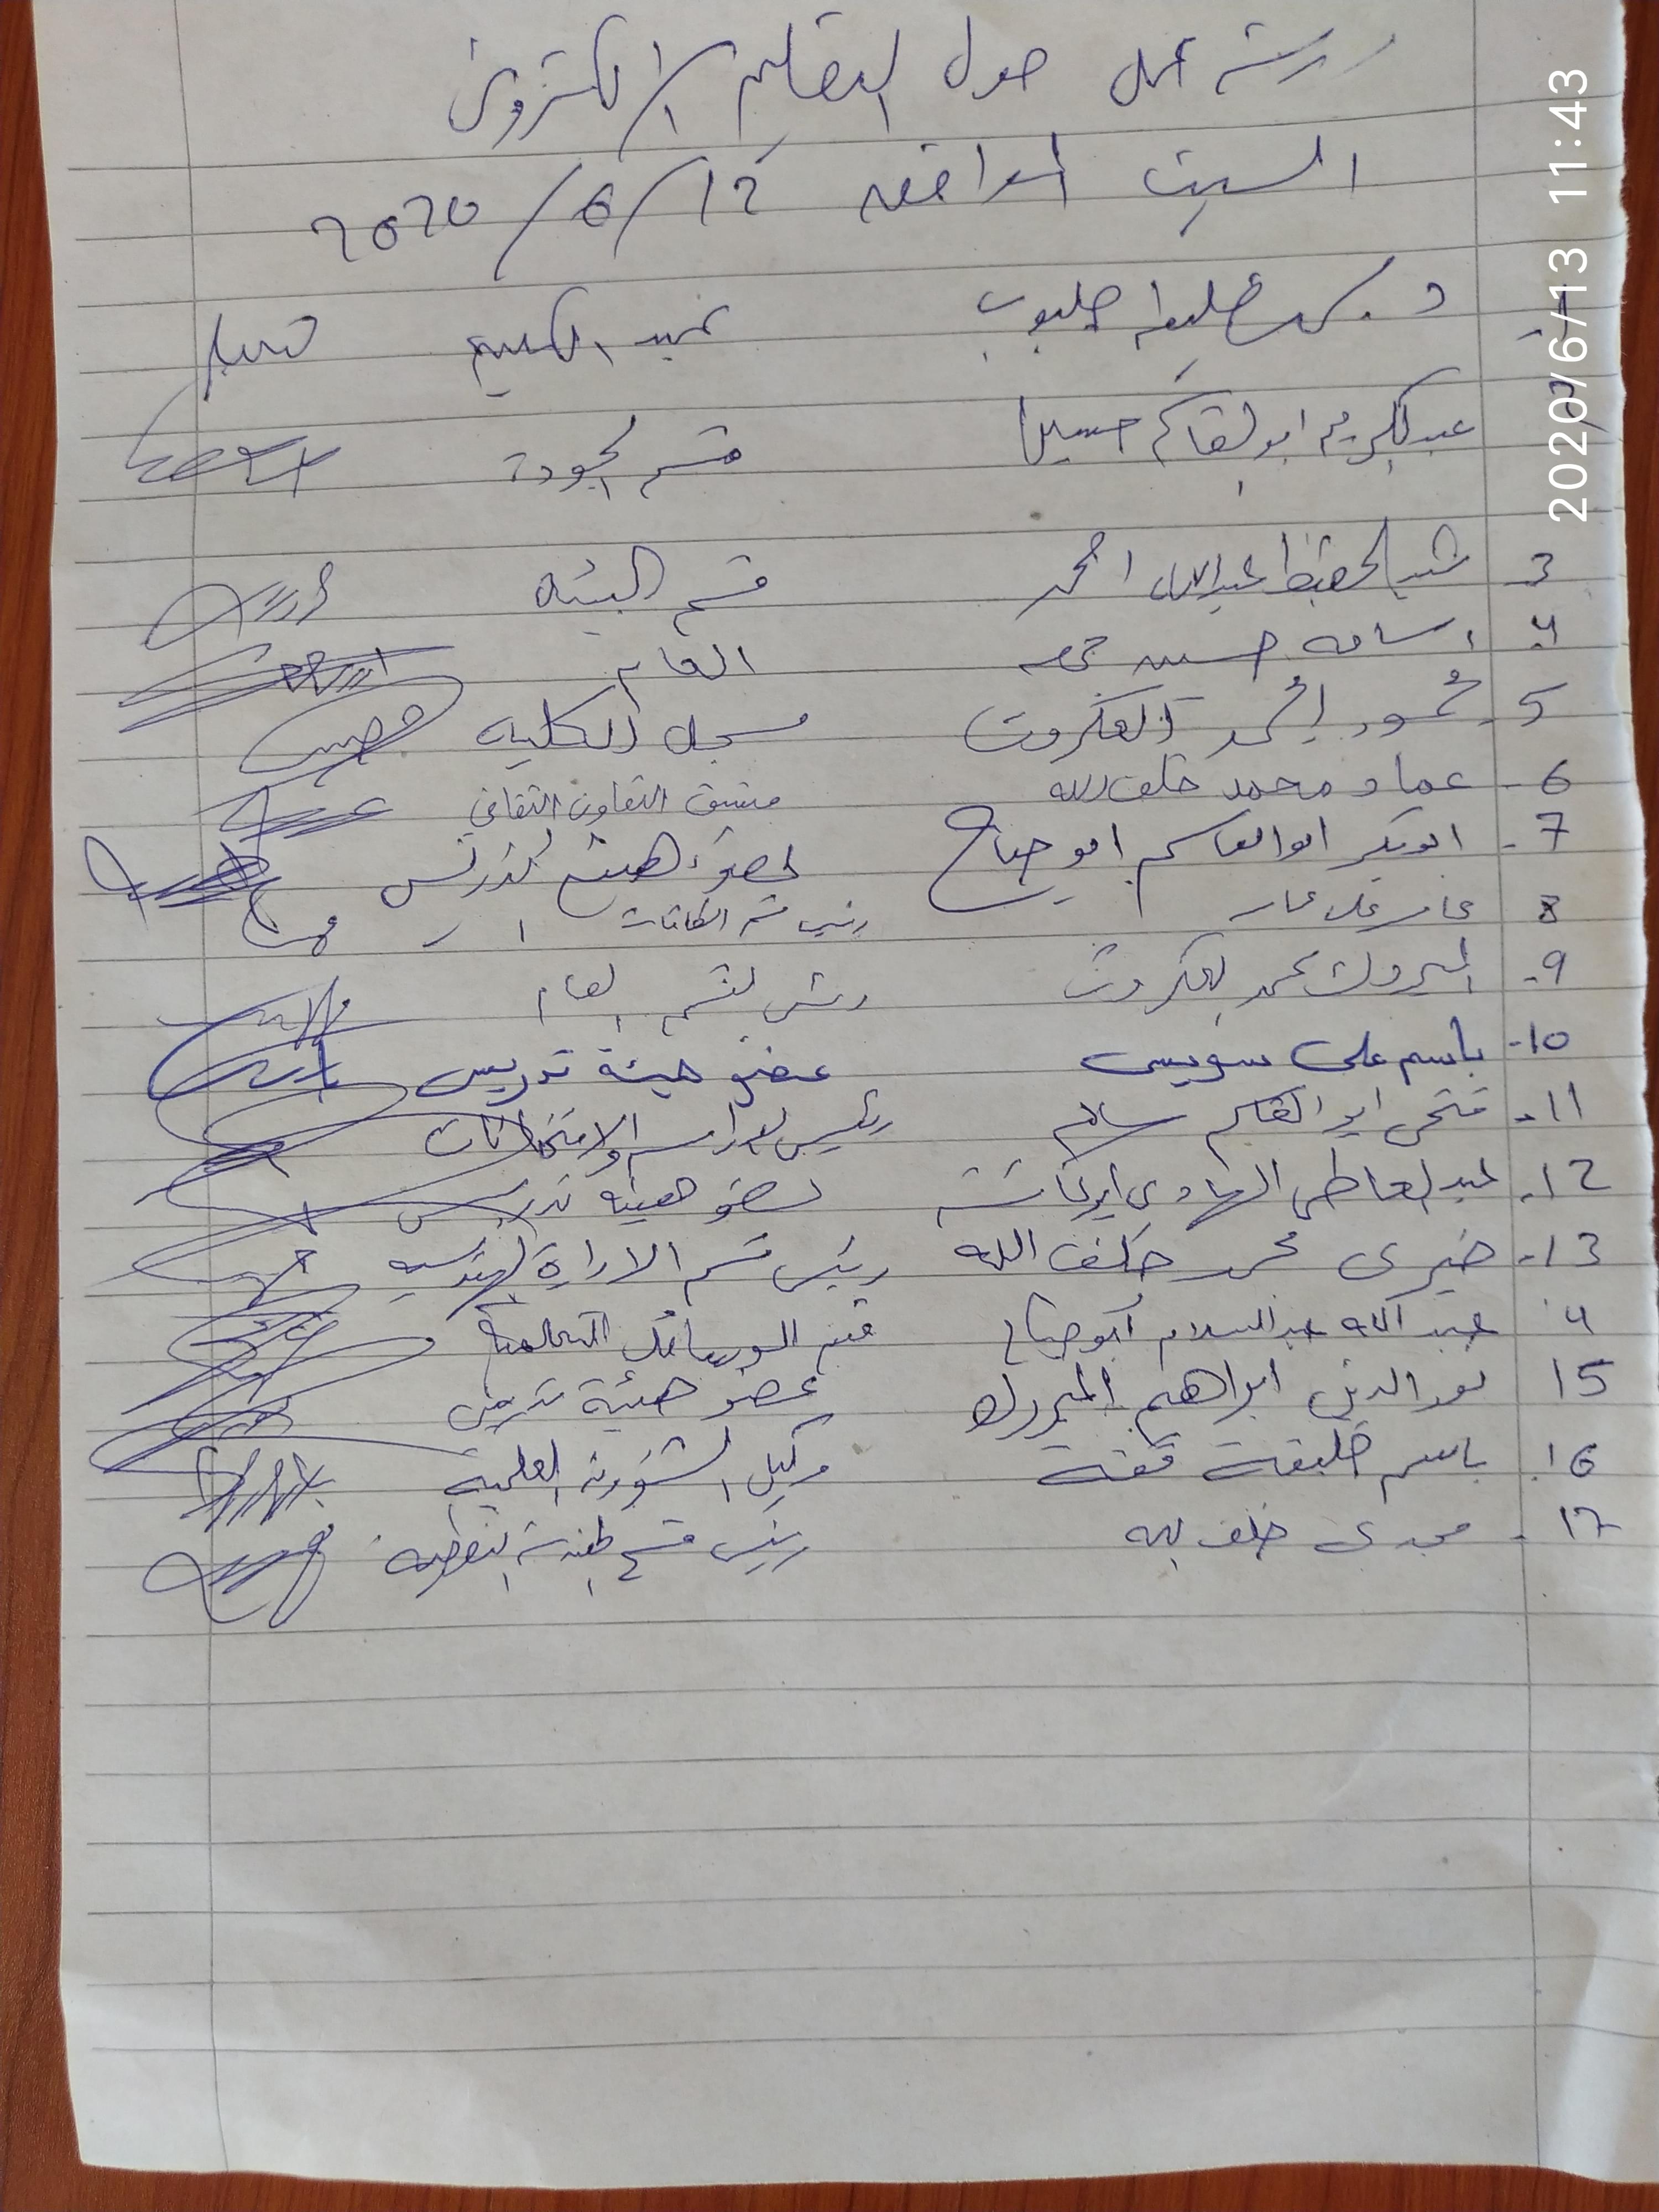 ورشة عمل حول التعليم الالكتروني
السبت الموافق 12/6/2020
د. خليفة عميد الكلية
عبدالكريم ابوالقاسم حسين قسم الجودة
3 عبدالحفيظ عبدالله احمد قسم البيئة
4 اسامه حسين جمعه العام
5- محمود احمد العكروت مسجل الكلية
6- عماد محمد خلف الله منسق التعاون الثقافي
7- ابوبكر ابوالقاسم ابو عضو هيئة تدريس
8 عامر عمار رئيس قسم الطاقات
9- المبروك محمد العكروت رئيس القسم العام
10- باسم على سويسى عضو هيئة تدريس
11- فتحي ابوالقاسم سالم رئيس الدراسة والامتحانات
12- عبدالعاطي الهادي عضو هيئة تدريس
13- خيرى محمد خلف الله رئيس قسم الادارة الهندسية
4 عبد الله عبدالسلام ابو قسم الوسائل التعليمية
15 نورالدين ابراهيم المبروك عضو هيئة تدريس
16. باسم خليفة وكيل الشؤون العلمية
17- مجدى خلف الله رئيس قسم النفطية
2020/6/13 11:43